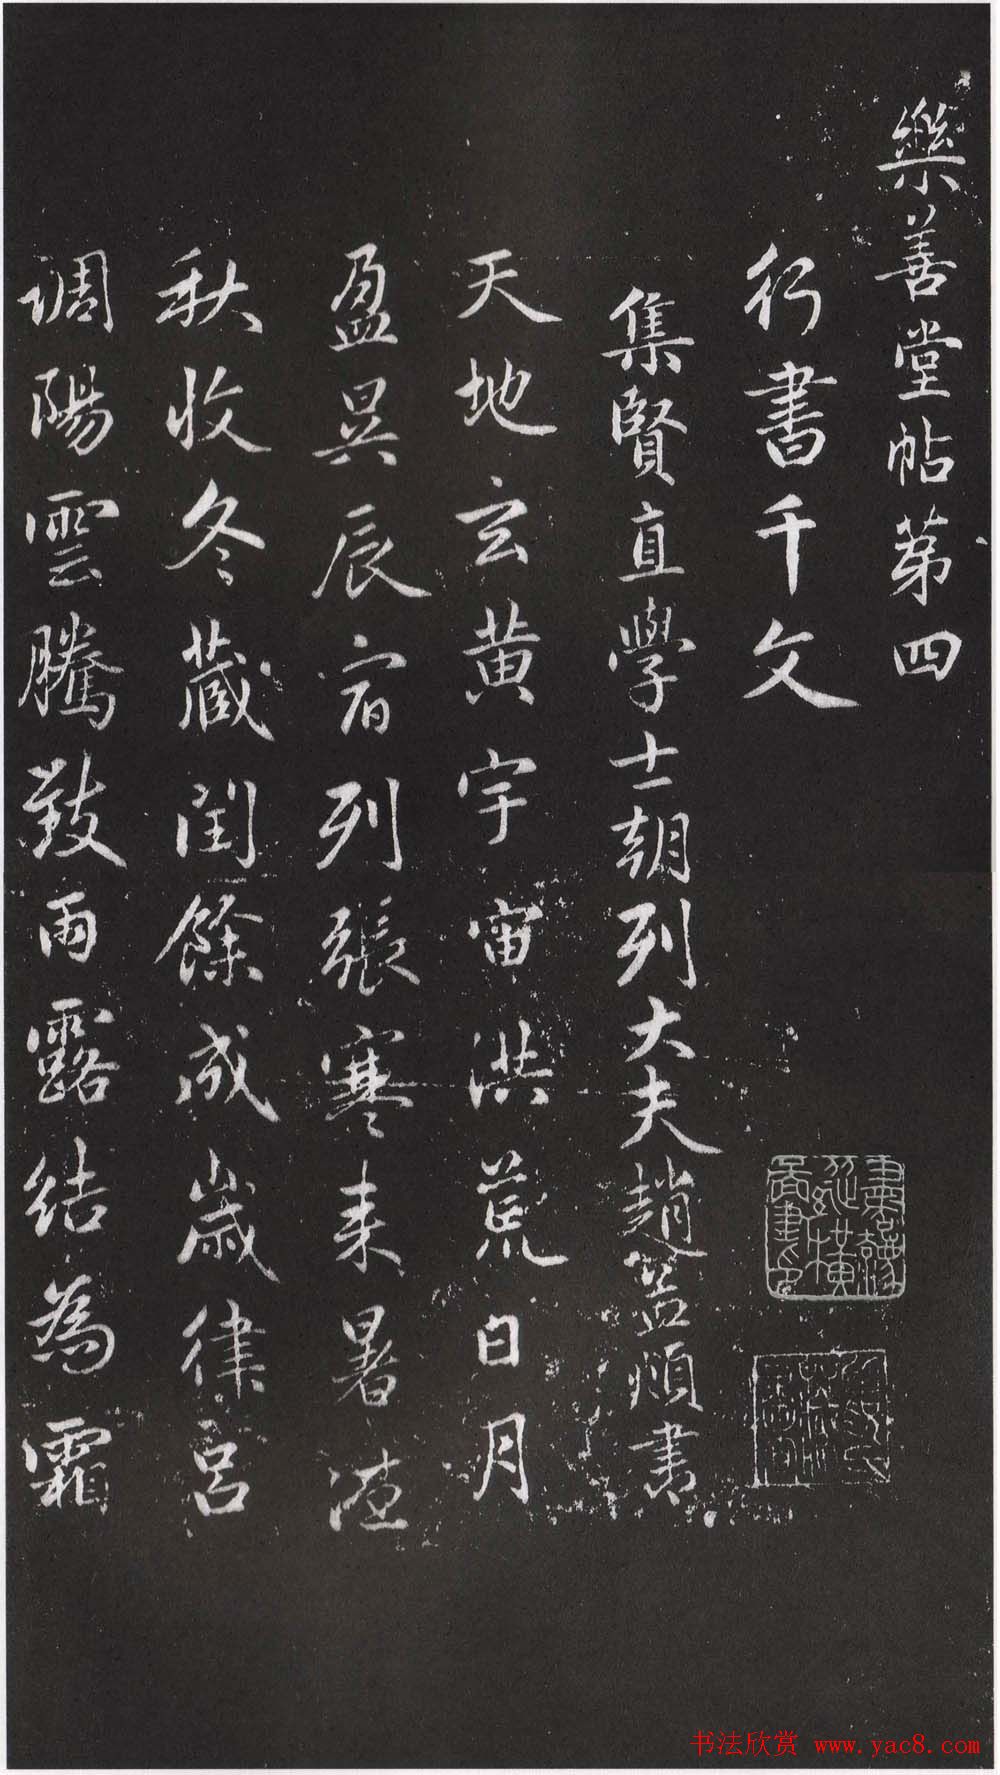 樂善堂帖苐四
行書千文
集賢直學士朝列大夫趙孟頫書
天地玄黄宇宙洪荒日月
盈昃辰宿列張寒来暑往
秋收冬蔵閏餘成嵗律吕
調陽雲騰致雨露結為霜
书法欣赏 www.yac8.com